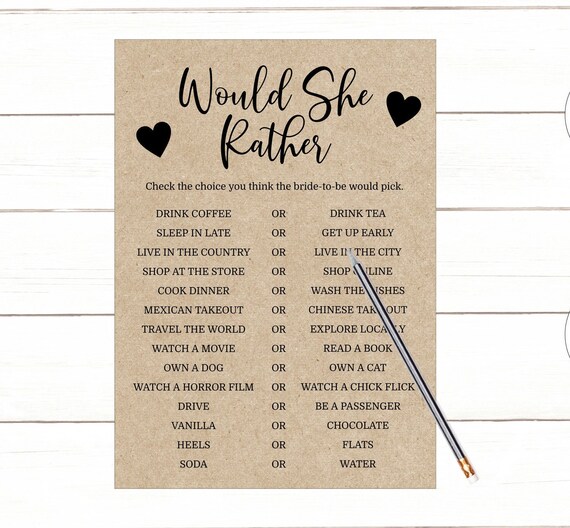 Would She
Rather
Check the choice you think the bride-to-be would pick.
DRINK COFFEE OR DRINK TEA
SLEEP IN LATE OR GET UP EARLY
LIVE IN THE COUNTRY OR LIVE IN THE CITY
SHOP AT THE STORE OR SHOP ONLINE
COOK DINNER OR WASH THE DISHES
MEXICAN TAKEOUT OR CHINESE TAKEOUT
TRAVEL THE WORLD OR EXPLORE LOCALLY
WATCH A MOVIE OR READ A BOOK
OWN A DOG OR OWN A CAT
WATCH A HORROR FILM OR WATCH A CHICK FLICK
DRIVE OR BE A PASSENGER
VANILLA OR CHOCOLATE
HEELS OR FLATS
SODA OR WATER